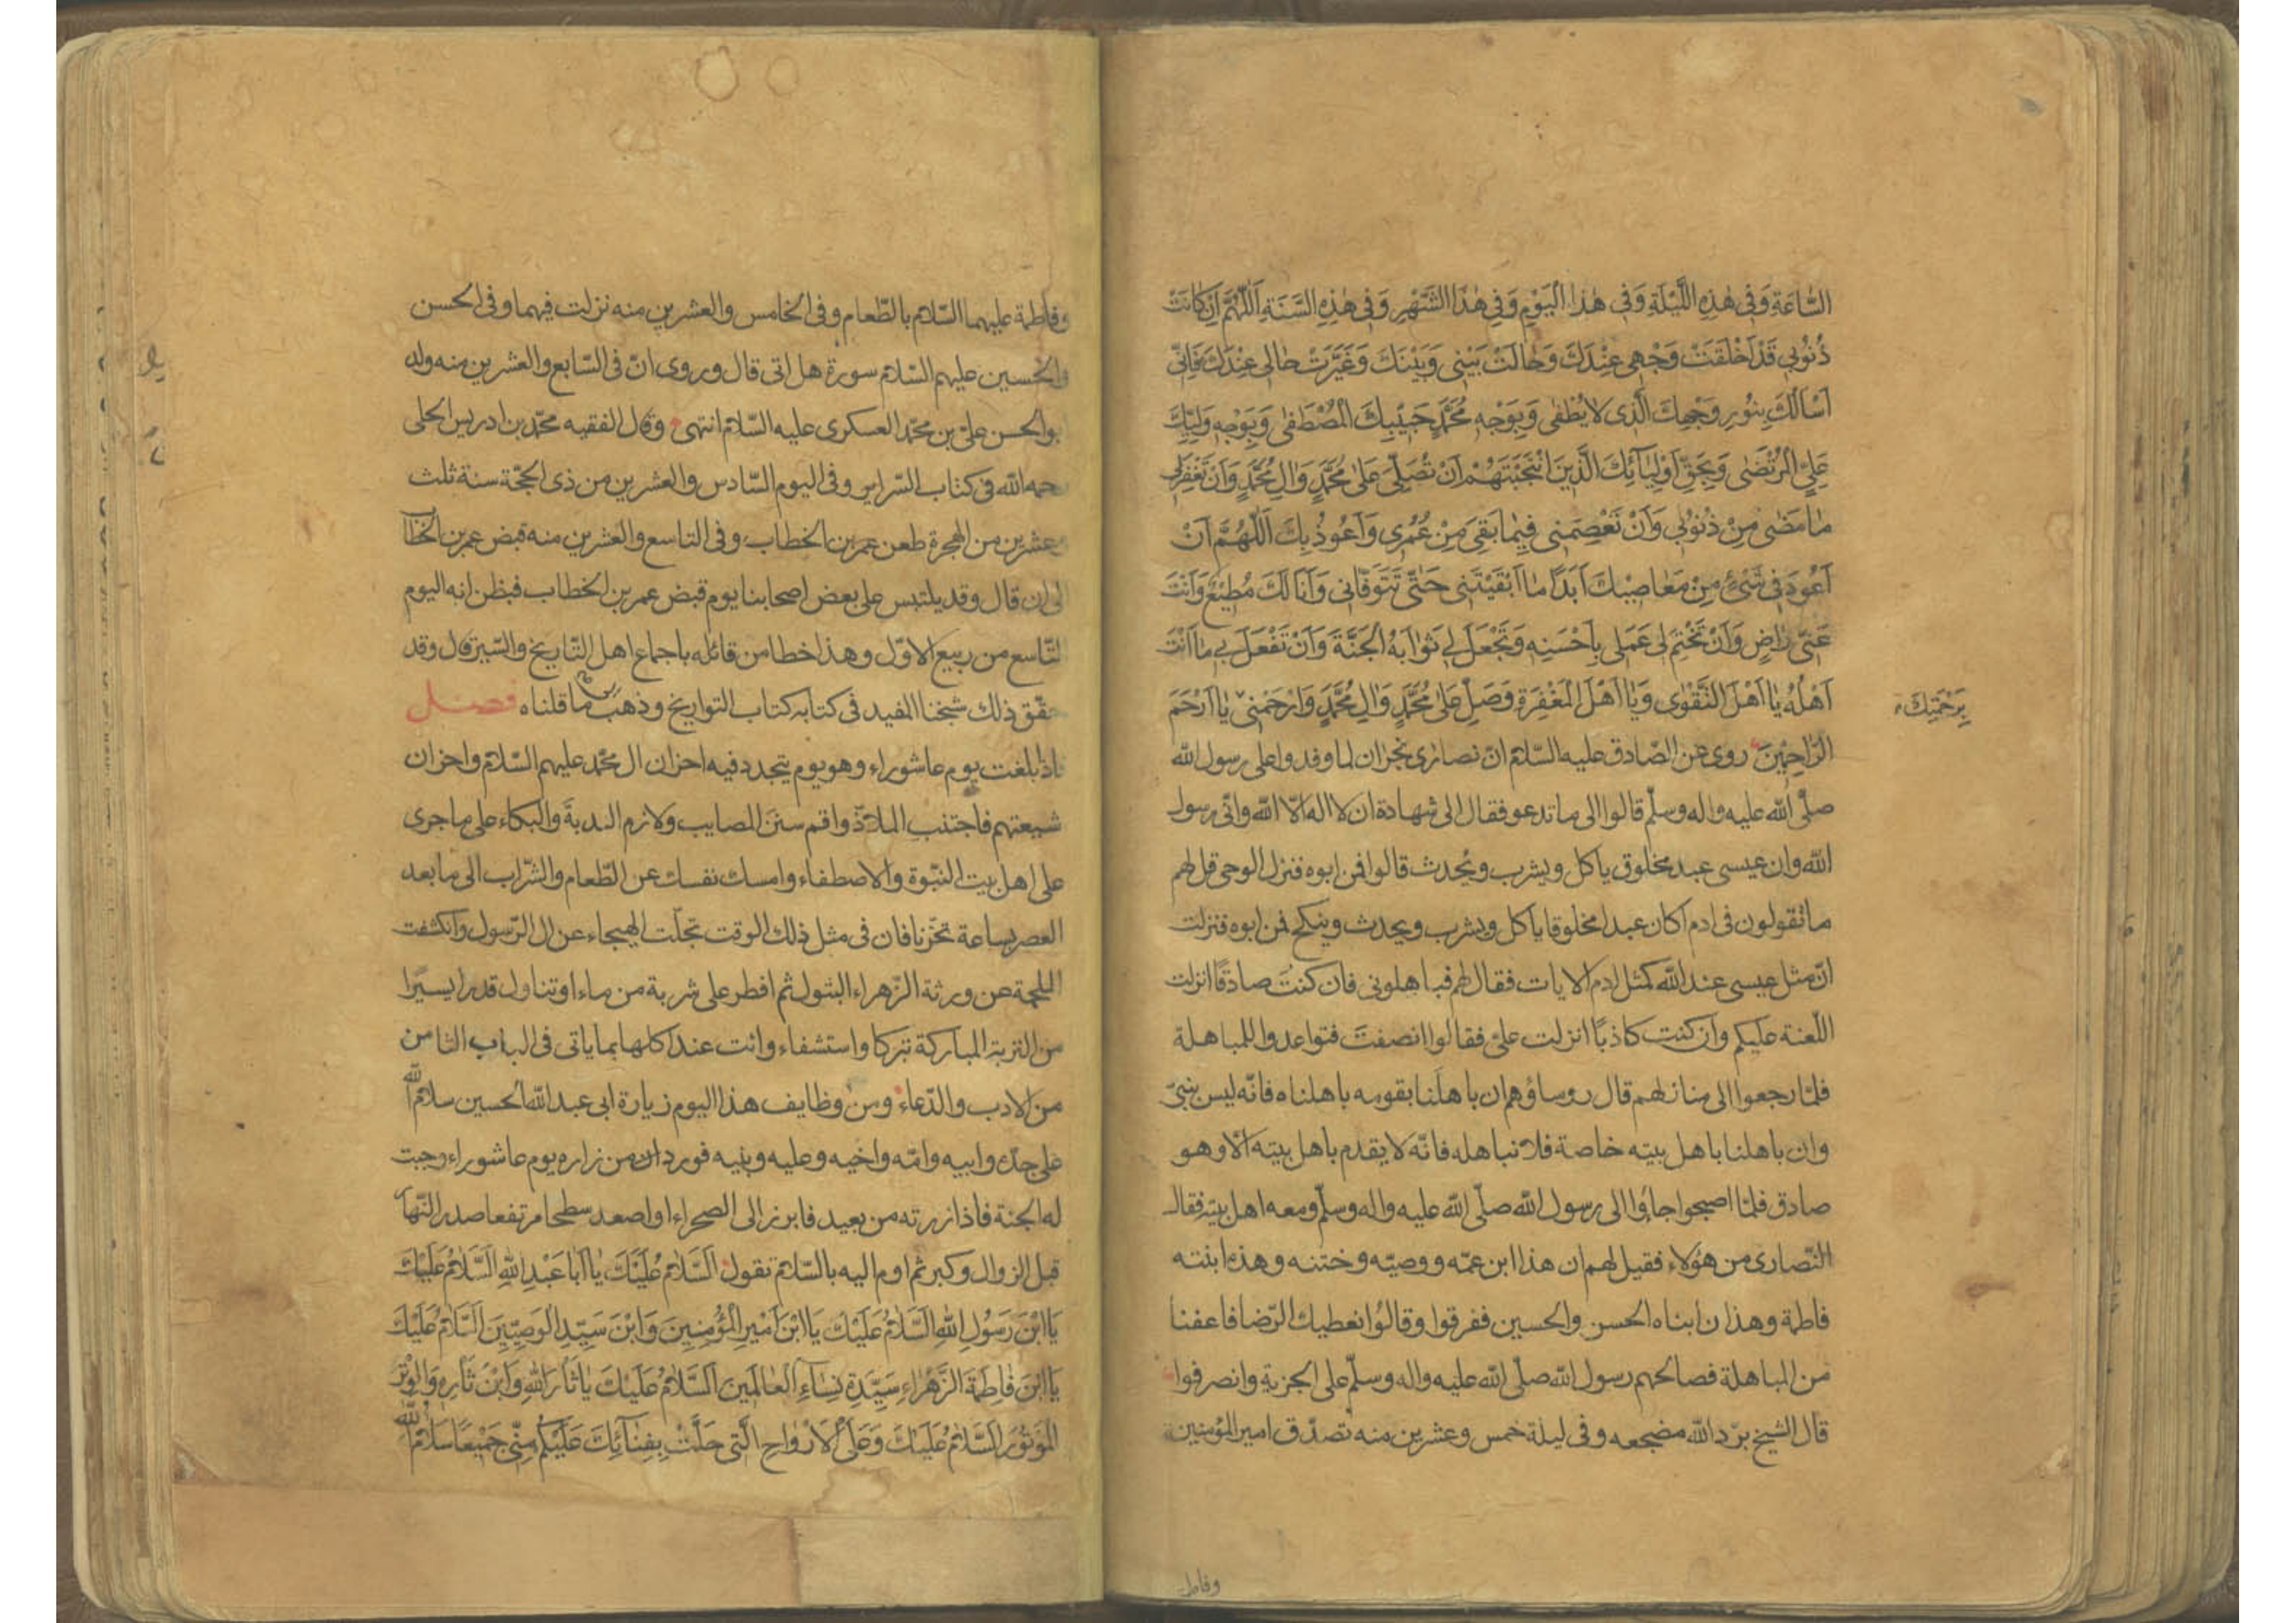 السّٰاعَةِ وَفى هٰذِهِ اللَّيْلَةِ وَفى هٰذَا الْيَوْمِ وَفى هٰذَا الشَّهْرِ وَفى هٰذِهِ السَّنَةِ اَللّٰهُمَّ اِنْ كٰانَتْ
ذُنُوبى قَدْ اَخْلَقَتْ وَجْهى عِنْدَكَ وَحٰالَتْ بَيْنى وَبَيْنَكَ وَغَيَّرَتْ حٰالى عِنْدَكَ فَاِنّى
اَسْاَلُكَ بِنُورِ وَجْهِكَ الَّذى لا يُطْفٰى وَبِوَجْهِ مُحَمَّدٍ حَبيْبِكَ الْمُصْطَفٰى وَبِوَجْهِ وَلِيِّكَ
عَلِيٍّ الْمُرْتَضٰى وَبِحَقِّ اَوْلِيٰائِكَ الَّذينَ انْتَجَبْتَهُمْ اَنْ تُصَلِّىَ عَلٰى مُحَمَّدٍ وَالِ مُحَمَّدٍ وَاَنْ تَغْفِرَلى
مٰا مَضٰى مِنْ ذُنُوبى وَاَنْ تَعْصِمَنى فيمٰا بَقِىَ مِنْ عُمُرى وَاَعُوذُ بِكَ اَللّٰهُمَّ اَنْ
اَعُودَ فى شَىْءٍ مِنْ مَعٰاصيْكَ اَبَدًا مٰا اَبْقَيْتَنى حَتّٰى تَتَوَفّٰانى وَاَنَا لَكَ مُطيْعٌ وَاَنْتَ
عَنّى رٰاضٍ وَاَنْ تَخْتِمَ لى عَمَلى بِاَحْسَنِهِ وَتَجْعَلَ لى ثَوٰابَهُ الْجَنَّةَ وَاَنْ تَفْعَلَ بى مٰا اَنْتَ
اَهْلُهُ يٰا اَهْلَ التَّقْوٰى وَيٰا اَهْلَ الْمَغْفِرَةِ وَصَلِّ عَلٰى مُحَمَّدٍ وَالِ مُحَمَّدٍ وَارْحَمْنى يٰا اَرْحَمَ
بِرَحْمَتِكَ
الرّٰاحِمينَ روى عن الصّادق عليه السّلام انّ نصارى نجران لما وفدوا على رسول الله
صلّى الله عليه واله وسلّم قالوا الى ما تدعو فقال الى شهادة ان لا اله الّا الله وانّى رسول
الله وان عيسى عبد مخلوق ياكل ويشرب ويحدث قالوا فمن ابوه فنزل الوحى قل لهم
ما تقولون فى ادم اكان عبدا مخلوقا ياكل ويشرب ويحدث وينكح فمن ابوه فنزلت
انّ مثل عيسى عند الله كمثل ادم الايات فقال لهم فباهلونى فان كنت صادقًا انزلت
اللّعنة عليكم وان كنت كاذبًا انزلت علىّ فقالوا انصفت فتواعدوا للمباهلة
فلمّا رجعوا الى منازلهم قال رؤساؤهم ان باهلنا بقومه باهلناه فانّه ليس بنبىّ
وان باهلنا باهل بيته خاصة فلا نباهله فانّه لا يقدم باهل بيته الّا وهو
صادق فلمّا اصبحوا جاؤا الى رسول الله صلّى الله عليه واله وسلّم ومعه اهل بيته فقال
النّصارى من هؤلاء فقيل لهم ان هذا ابن عمّه ووصيّه وختنه وهذه ابنته
فاطمة وهذان ابناه الحسن والحسين ففرقوا وقالوا نعطيك الرّضا فاعفنا
من المباهلة فصالحهم رسول الله صلّى الله عليه واله وسلّم على الجزية وانصرفوا
قال الشيخ برّد الله مضجعه وفى ليلة خمس وعشرين منه تصدّق امير المؤمنين
وفاط
وفاطمة عليهما السّلام بالطّعام وفى الخامس والعشرين منه نزلت فيهما وفى الحسن
والحسين عليهم السّلام سورة هل اتى قال وروى انّ فى السّابع والعشرين منه ولد
ابو الحسن علىّ بن محمّد العسكرى عليه السّلام انتهى وقال الفقيه محمّد بن ادريس الحلى
رحمه الله فى كتاب السّراير وفى اليوم السّادس والعشرين من ذى الحجّة سنة ثلث
وعشرين من الهجرة طعن عمر بن الخطاب وفى التاسع والعشرين منه قبض عمر بن الخطاب
الى ان قال وقد يلتبس على بعض اصحابنا يوم قبض عمر بن الخطاب فيظن انه اليوم
التّاسع من ربيع الاوّل وهذا خطا من قائله باجماع اهل التّاريخ والسّير قال وقد
حقّق ذلك شيخنا المفيد فى كتابه كتاب التواريخ وذهب الى ما قلناه فصل
اذا بلغت يوم عاشوراء وهو يوم يتجدد فيه احزان ال محمّد عليهم السّلام واحزان
شيعتهم فاجتنب الملاذّ واقم سنن المصايب ولازم الندبة والبكاء على ما جرى
على اهل بيت النبّوة والاصطفاء وامسك نفسك عن الطّعام والشّراب الى ما بعد
العصر بساعة تحّزنا فان فى مثل ذلك الوقت تجلّت الهيجاء عن ال الرّسول وانكشفت
الملحمة عن ورثة الزّهراء البتول ثم افطر على شربة من ماء او تناول قدرا يسيرًا
من التربة المباركة تبركا واستشفاء وائت عند اكلها بما ياتى فى الباب الثامن
من الادب والدّعاء ومن وظايف هذا اليوم زيارة ابى عبد الله الحسين سلام الله
على جدّه وابيه وامّه واخيه وعليه وبنيه فورد ان من زاره يوم عاشوراء وجبت
له الجنة فاذا زرته من بعيد فابرز الى الصحراء او اصعد سطحا مرتفعا صدر النّهار
قبل الزوال وكبر ثم اوم اليه بالسّلام تقول اَلسَّلٰامُ عَلَيْكَ يٰا اَبٰا عَبْدِ اللهِ اَلسَّلٰامُ عَلَيْكَ
يَا ابْنَ رَسُولِ اللهِ اَلسَّلٰامُ عَلَيْكَ يَا ابْنَ اَميرِ الْمُؤْمِنينَ وَابْنَ سَيِّدِ الْوَصِيّينَ اَلسَّلٰامُ عَلَيْكَ
يَا ابْنَ فٰاطِمَةَ الزَّهْرٰاءِ سَيِّدَةِ نِسٰاءِ الْعٰالَمينَ اَلسَّلٰامُ عَلَيْكَ يٰا ثٰارَ اللهِ وَابْنَ ثٰارِهِ وَالْوِتْرَ
الْمَوْتُورَ اَلسَّلٰامُ عَلَيْكَ وَعَلَى الْاَرْوٰاحِ الَّتى حَلَّتْ بِفِنٰائِكَ عَلَيْكُمْ مِنّى جَميْعًا سَلٰامُ اللهِ